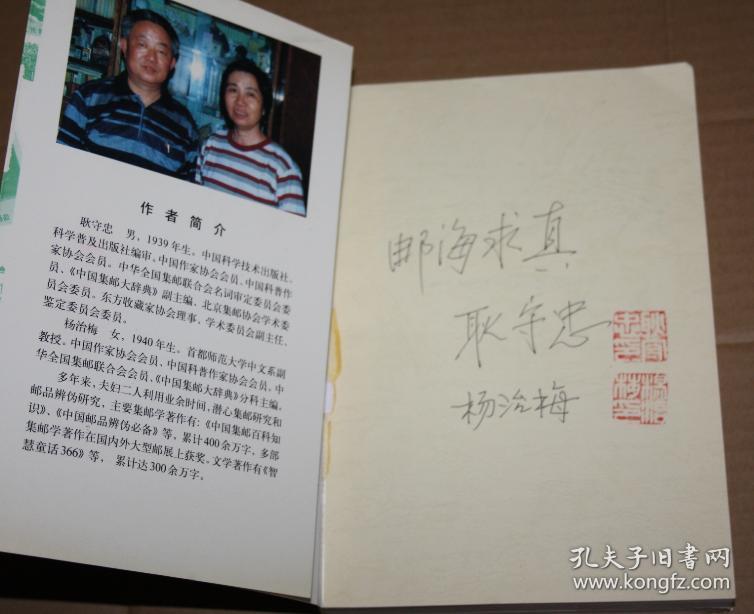 作者简介
耿守忠　男，1939年生。中国科学技术出版社、
科学普及出版社编审。中国作家协会会员、中国科普作
家协会会员。中华全国集邮联合会名词审定委员会委
员、《中国集邮大辞典》副主编。北京集邮协会学术委
员会委员。东方收藏家协会理事、学术委员会副主任、
鉴定委员会委员。
杨治梅　女，1940年生。首都师范大学中文系副
教授。中国作家协会会员、中国科普作家协会会员，中
华全国集邮联合会会员、《中国集邮大辞典》分科主编。
多年来，夫妇二人利用业余时间，潜心集邮研究和
邮品辨伪研究，主要集邮学著作有：《中国集邮百科知
识》、《中国邮品辨伪必备》等，累计400余万字，多部
集邮学著作在国内外大型邮展上获奖。文学著作有《智
慧童话366》等，累计达300余万字。
邮海求真
耿守忠
杨治梅
孔夫子旧书网
www.kongfz.com